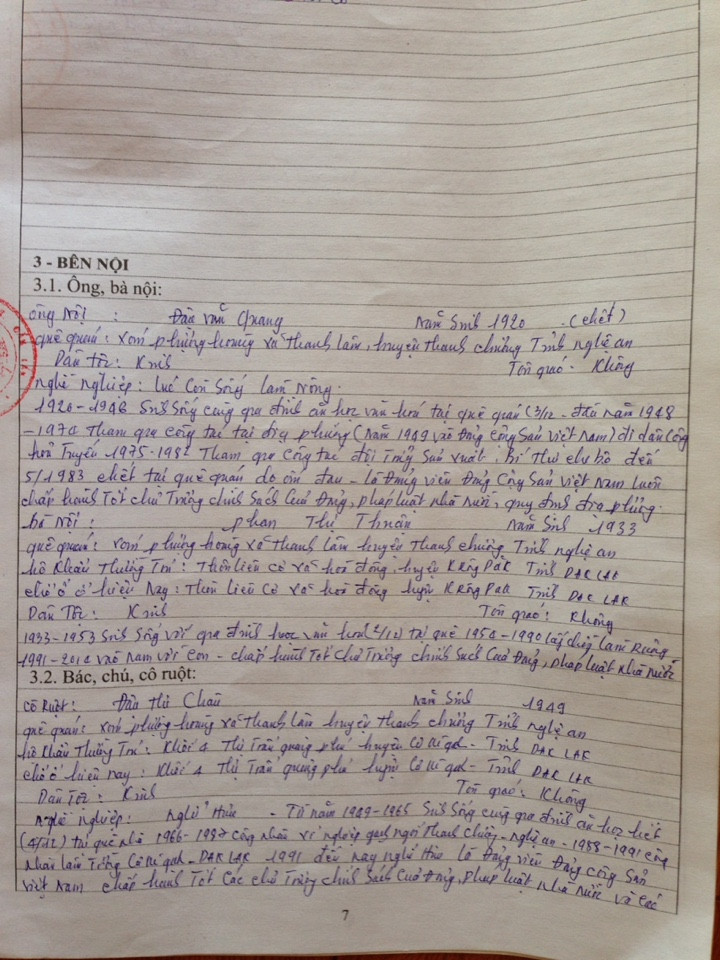 3 - BÊN NỘI
3.1. Ông, bà nội:
Ông Nội : Đậu văn Quang Năm Sinh 1920 (chết)
quê quán: xóm phượng hoàng xã thanh lâm, huyện thanh chương Tỉnh nghệ an
Dân tộc: Kinh Tôn giáo: Không
nghề nghiệp: lúc Còn Sống Làm Nông.
1920 - 1946 Sinh Sống cùng gia đình ăn học văn hoá tại quê quán (3/12 - đầu năm 1948
- 1974 Tham gia công tác tại địa phương (Năm 1949 vào Đảng Cộng Sản Việt Nam) đi dân công
hoả Tuyến 1975-1982 Tham gia công tác đội Trưởng Sản xuất, Bí Thư chi bộ đến
5/1983 chết tại quê quán do ốm đau - là Đảng viên Đảng Cộng Sản Việt Nam luôn
chấp hành Tốt chủ Trương chính Sách Của Đảng, pháp luật nhà Nước, quy định địa phương.
bà Nội : phan Thị Thuận Năm Sinh 1933
quê quán: xóm phượng hoàng xã Thanh Lâm huyện Thanh chương Tỉnh nghệ an
hộ Khẩu Thường Trú: Thôn xã hoà đông, huyện KRông PăK Tỉnh DAK LAK
chỗ ở hiện Nay: Thôn xã hoà đông huyện KRông PaK Tỉnh DAK LAK
Dân Tộc: Kinh Tôn giáo: Không
1933-1953 Sinh Sống với gia đình học văn hoá 2/12) tại quê 1954-1990 lấy chồng Làm Ruộng
1991-2014 vào Nam với Con - chấp hành Tốt Chủ Trương chính Sách Của Đảng, pháp luật Nhà Nước
3.2. Bác, chú, cô ruột:
Cô Ruột: Đậu Thị Châu Năm Sinh 1949
quê quán: xóm phượng hoàng xã Thanh lâm huyện Thanh chương Tỉnh nghệ an
hộ Khẩu Thường Trú: Khối 4 Thị Trấn quảng phú huyện Cư M'gar - Tỉnh DAK LAK
chỗ ở hiện nay: Khối 4 Thị Trấn quảng phú huyện Cư M'gar - Tỉnh DAK LAK
Dân Tộc: Kinh Tôn giáo: Không
nghề nghiệp: Nghỉ Hưu - Từ năm 1949-1965 Sinh Sống cùng gia đình ăn học hết
(4/12) tại quê nhà 1966-1987 công nhân xí nghiệp gạch ngói Thanh Chương - Nghệ an - 1988-1991 công
Nhân Cư M'gar - DAK LAK 1991 đến nay nghỉ Hưu là Đảng viên Đảng Cộng Sản
việt Nam chấp hành Tốt Các chủ Trương chính Sách Của Đảng, pháp luật nhà Nước và Các
7